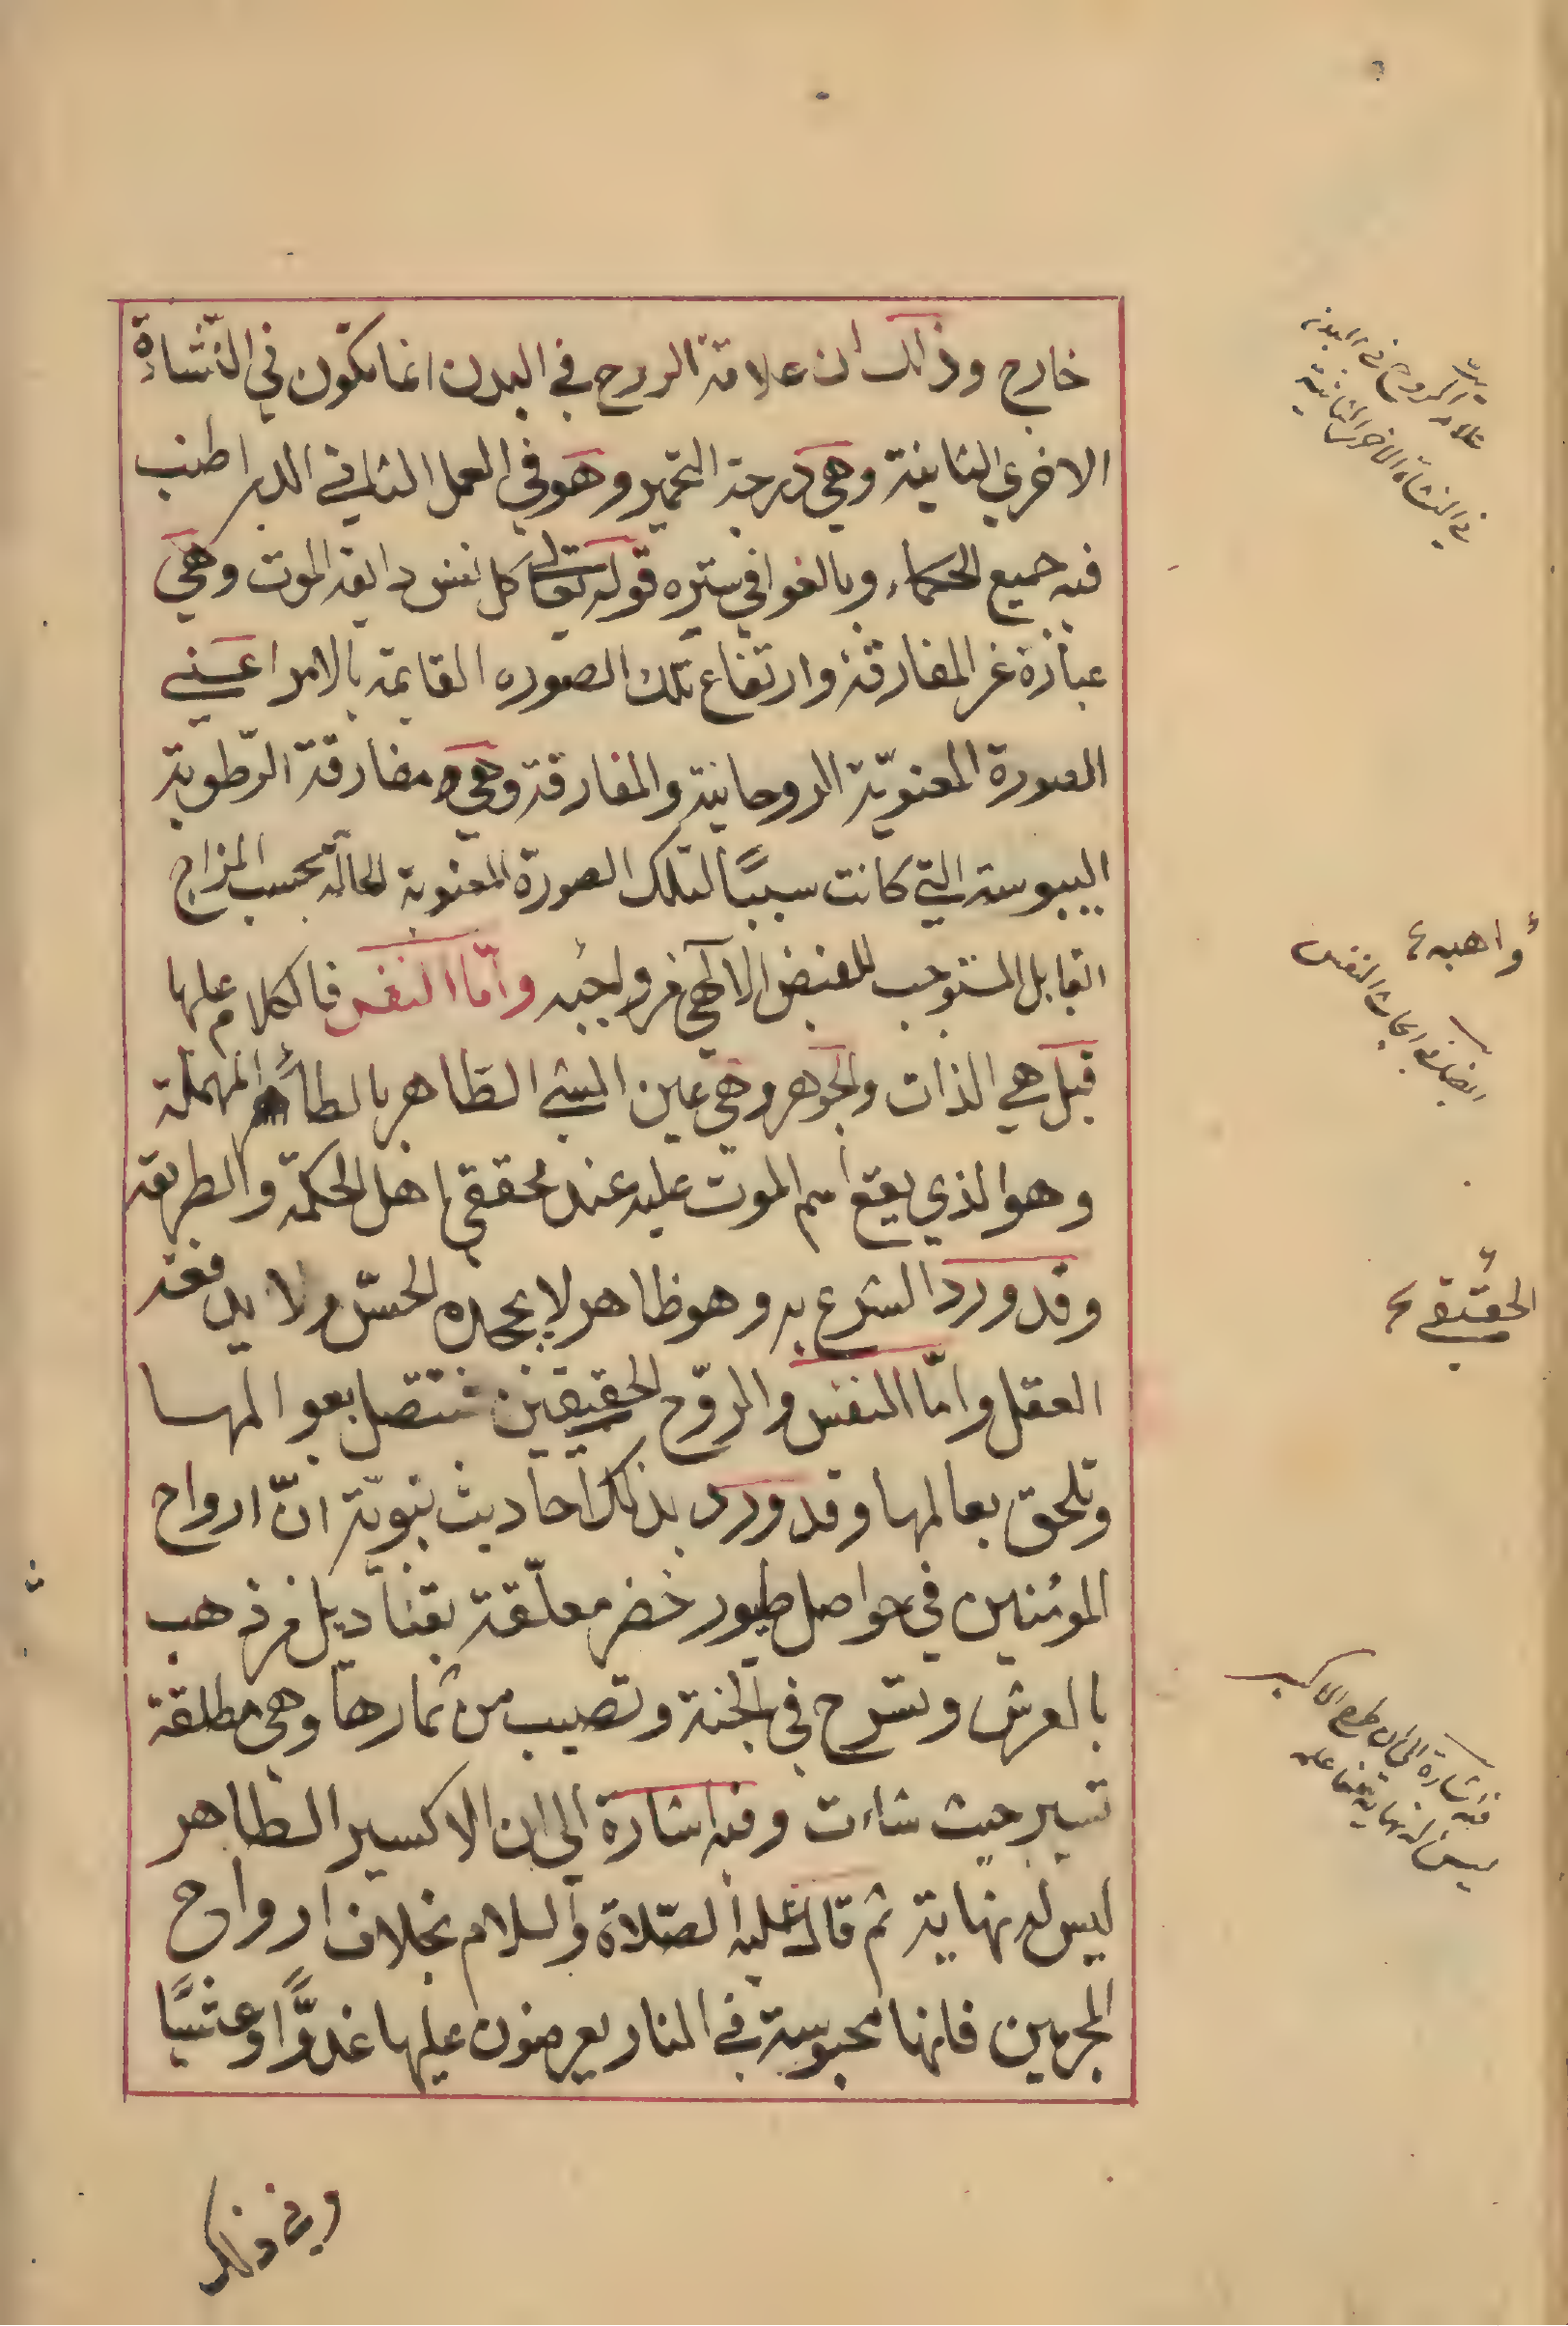 خارج وذالك ان علامة الروح في البدن انما تكون في النّشاءة
الاخري الثانية وهي درجة التحمير وهو في العمل الثاني الذي اطنب
فيه جميع الحكماء وبالغوا في ستره قوله تعالى كل نفس دايقه الموت وهي
عبارة عن المفارقة وارتفاع تلك الصوره القايمة بالامر اعني
الصورة المعنويّة الروحانية والمفارقة وهي مفارقة الرّطوبة
اليبوسة التي كانت سببًا لتلك الصورة المعنوية الحالّة بحسب المزاج
القابل المستوجب للفيض الالٓهي من واجبه وأمّا النفس فالكلام عليها
قيل هي الذات والجوهر وهي عين الشي الطاهر بالطاء المهملة
وهو الذي يقع اسم الموت عليه عند محققي اهل الحكمة والطريقه
وقد ورد الشرع به وهو ظاهر لا يجحده الحسّ ولا يدفعه
العقل وامّا النفس والروّح الحقيقين فتتصل بعوالمها
وتلحق بعالمها وقد ورد بذلك احاديث نبويّة انّ ارواح
المؤمنين في حواصل طيور خضر معلّقة بقناديل من ذهب
بالعرش وتسرح في الجنة وتصيب من ثمارها وهي مطلقة
تسير حيث شاءت وفيه اشارة الي ان الاكسير الطاهر
ليس له نهاية ثم قال عليه الصّلاة والسلام بخلاف ارواح
المجرمين فانها محبوسة في النار يعرضون عليها غدوًّا وعشيًّا
وفي ذلك
علامة الروح في البدن
في النشاءة الاخرى الثانية
واهبه
ابحاث النفس
الحقيقي
فيه اشارة الى ان طرح الاكسير
ليس له نهاية